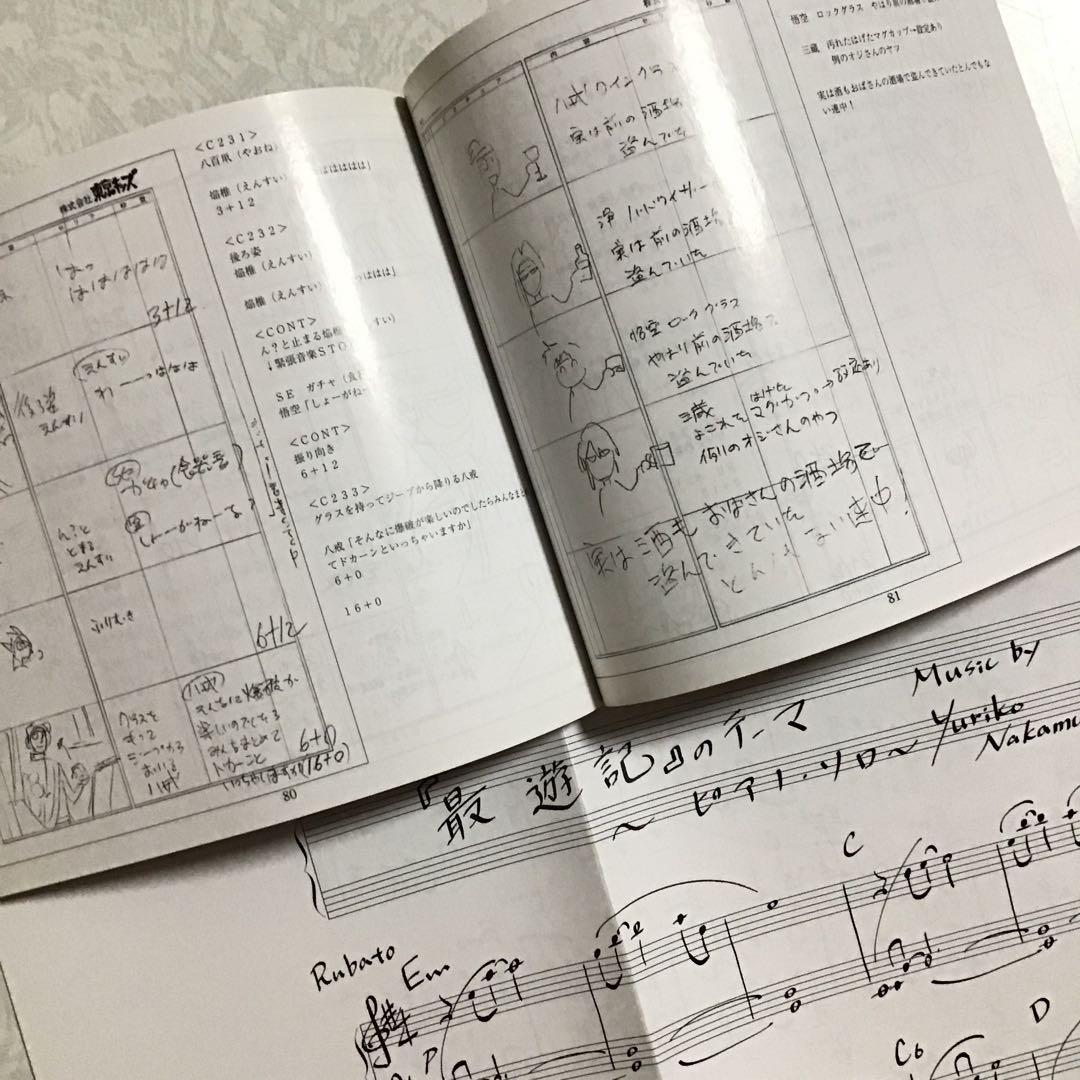 株式会社 東京キッズ
はっ
はははは
3+12
後ろ姿
えんすい
えんすい
わーーっははは
ん?と
とまる
えんすい
しょーがねーな?
ふりむき
6+12
グラスを
もって
ジープから
おりる
八戒
八戒
そんなに爆破が
楽しいのでしたら
みんなまとめて
ドカーンと
6+0
(16+0)
80
<C231>
八百鼡(やおね)
焔椎(えんすい
はははは」
3+12
<C232>
後ろ姿
焔椎(えんすい
焔椎(えんすい
っははは」
<CONT>
ん?と止まる焔椎
すい)
↓緊張音楽STO
SE ガチャ(
悟空「しょーがねー
<CONT>
振り向き
6+12
<C233>
グラスを持ってジープから降りる八戒
八戒「そんなに爆破が楽しいのでしたらみんなまと
てドカーンといっちゃいますか」
6+0
16+0
内容
八戒ワイングラス
実は前の酒場で
盗んでいた
浄 バドワイザー
実は前の酒場で
盗んでいた
悟空 ロックグラス
やはり前の酒場で
盗んでいた
三蔵 はげた
よごれたマグカップ→設定あり
例のオジさんのやつ
実は酒もおばさんの酒場で
盗んできていた
とんでもない連中!
81
悟空 ロックグラス やはり前の酒場で
三蔵 汚れたはげたマグカップ→設定あり
例のオジさんのヤツ
実は酒もおばさんの酒場で盗んできていたとんでもな
い連中!
『最遊記』のテーマ
〜ピアノ・ソロ〜
Music by
Yuriko
Nakamu
Rubato
Em
C
P
C6
D